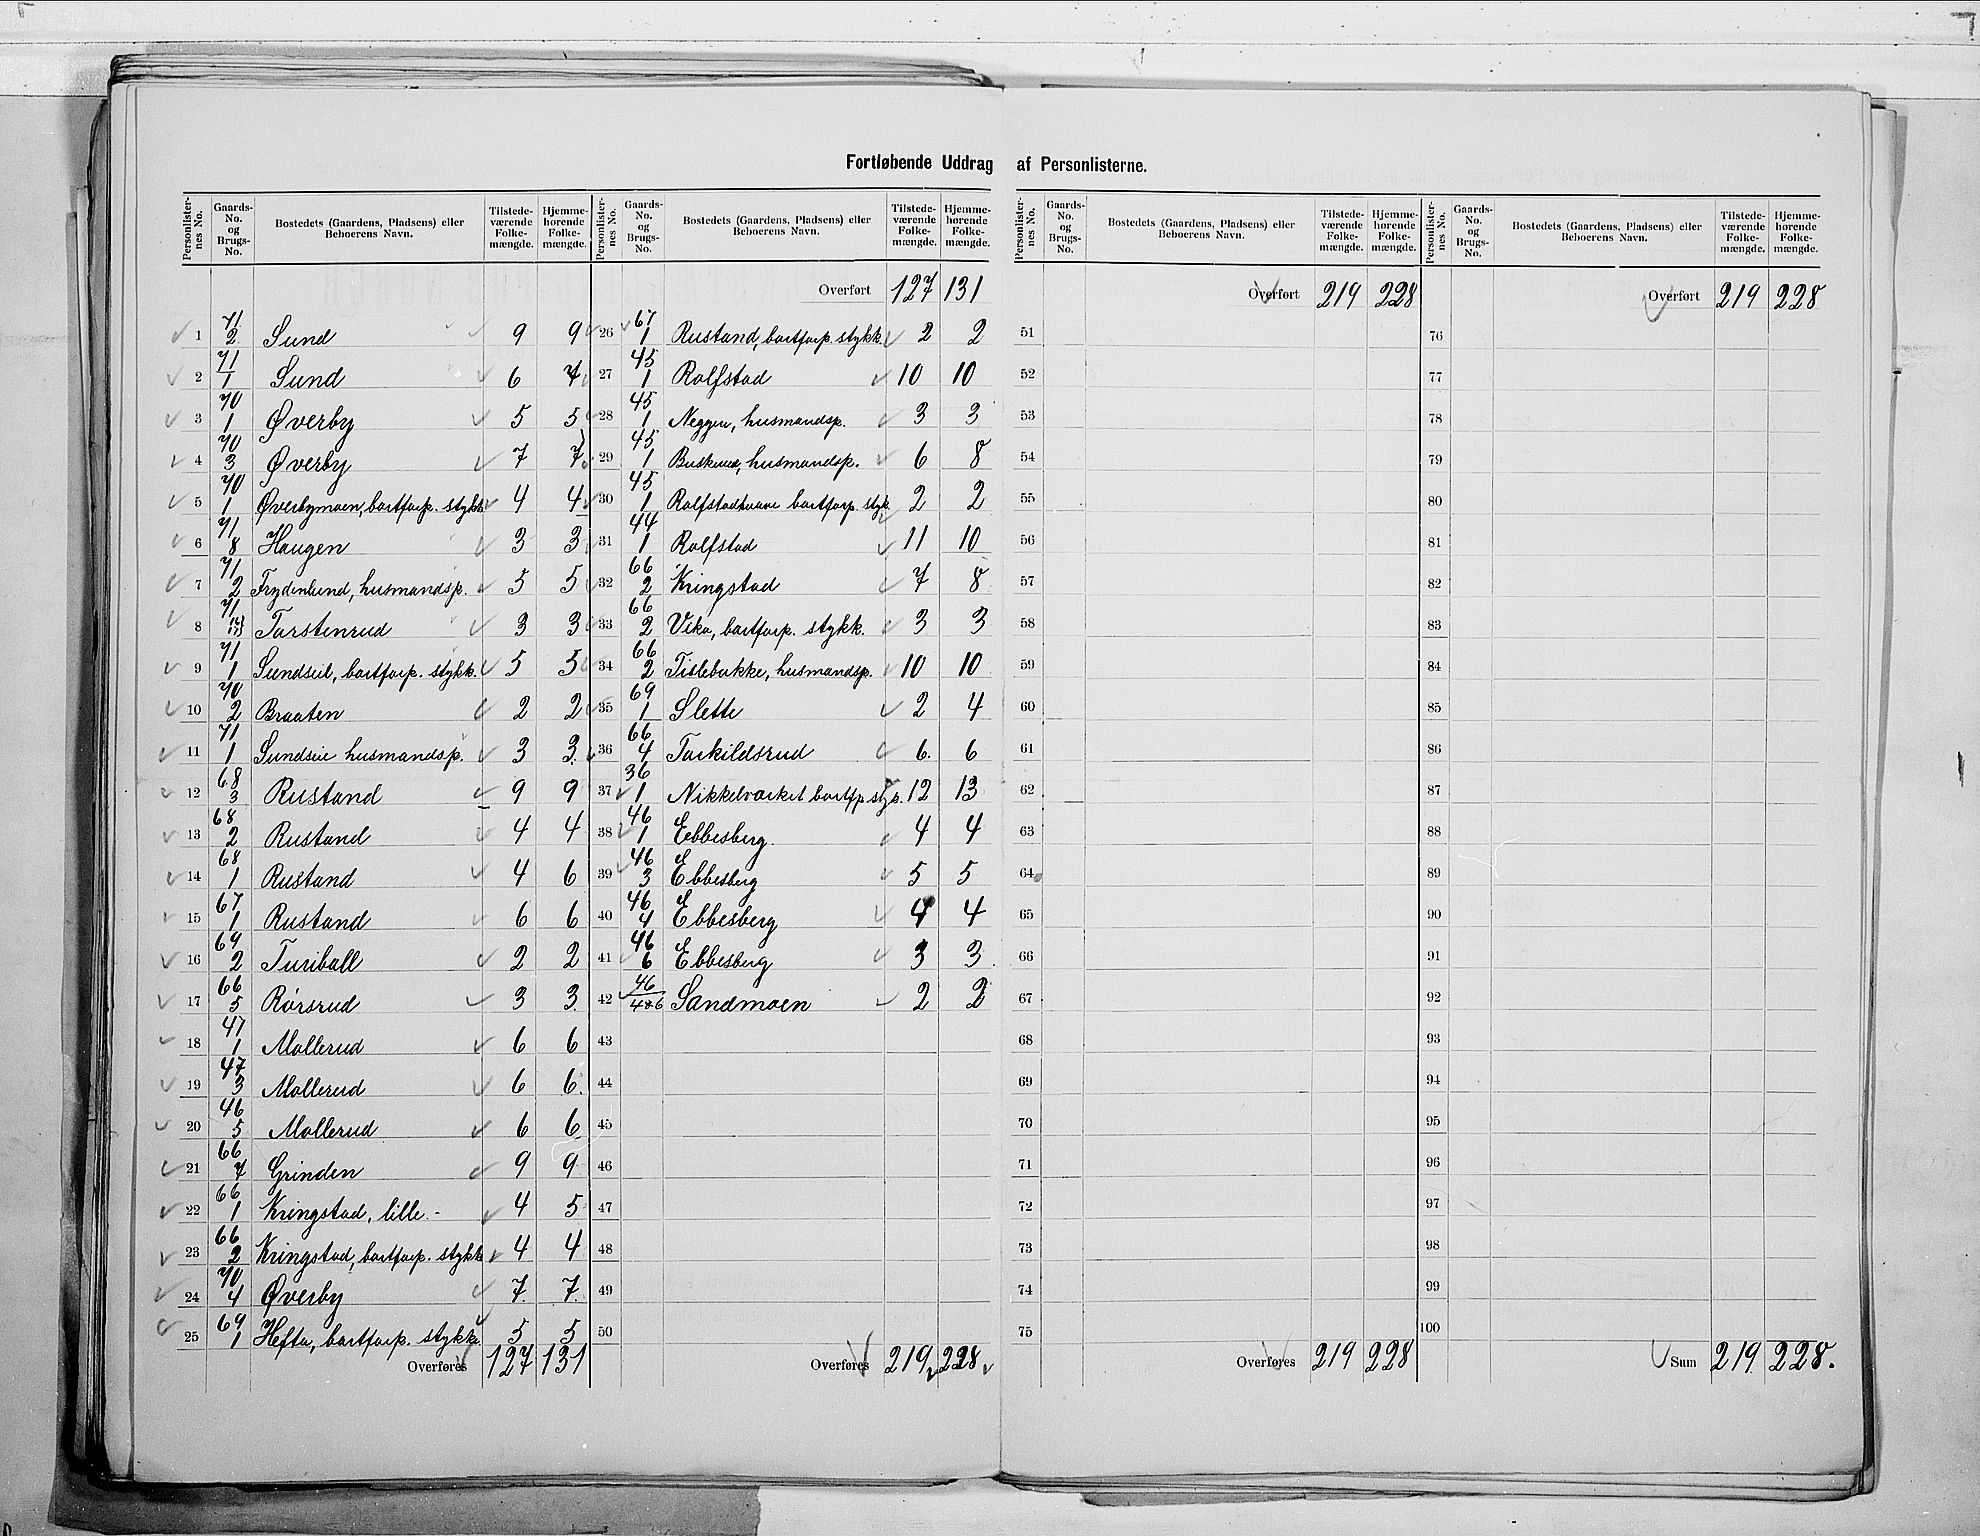 Fortløbende Uddrag af Personlisterne.
Personlister-nes No. Gaards-No. og Brugs-No. Bostedets (Gaardens, Pladsens) eller Beboerens Navn. Tilstede-værende Folke-mængde. Hjemme-hørende Folke-mængde.
1 71/2 Sund 9 9
2 71/1 Sund 6 7
3 70/1 Øverby 5 5
4 70/3 Øverby 7 7
5 70/1 Øverbymoen, bortforp. stykk 4 4
6 71/8 Haugen 3 3
7 71/2 Frydenlund, husmandsp. 5 5
8 71 Torstenrud 3 3
9 71/1 Sundseie, bortforp. stykk. 5 5
10 70/2 Braaten 2 2
11 71/1 Sundseie husmandsp. 3 3
12 68/3 Rustand 9 9
13 68/2 Rustand 4 4
14 68/1 Rustand 4 6
15 67/1 Rustand 6 6
16 69/2 Turiball 2 2
17 66/5 Rørsrud 3 3
18 47/1 Mollerud 6 6
19 47/3 Mollerud 6 6
20 46/5 Mollerud 6 6
21 66/7 Grinden 9 9
22 66/1 Kringstad, lille 4 5
23 66/2 Kringstad, bortforp. stykk 4 4
24 70/4 Øverby 7 7
25 69/1 Hefta, bortforp. stykke 5 5
Overføres 127 131
Personlister-nes No. Gaards-No. og Brugs-No. Bostedets (Gaardens, Pladsens) eller Beboerens Navn. Tilstede-værende Folke-mængde. Hjemme-hørende Folke-mængde.
Overført 127 131
26 67/1 Rustand, bortforp. stykk. 2 2
27 45/1 Rolfstad 10 10
28 45/1 Neggen, husmandsp. 3 3
29 45/1 Buskerud, husmandsp. 6 8
30 45/1 bortforp. styk. 2 2
31 44/1 Rolfstad 11 10
32 66/2 Kringstad 7 8
33 66/2 Vika, bortforp. stykk. 3 3
34 66/2 Tislebakke, husmandsp. 10 10
35 69/1 Slette 2 4
36 66/4 Torkildsrud 6 6
37 36/1 Nikkelværket bortfp. styk. 12 13
38 46/1 Ebbesberg 4 4
39 46/3 Ebbesberg 5 5
40 46/4 Ebbesberg 4 4
41 46/6 Ebbesberg 3 3
42 46/4+6 Sandmoen 2 2
43
44
45
46
47
48
49
50
Overføres 219 228
Personlister-nes No. Gaards-No. og Brugs-No. Bostedets (Gaardens, Pladsens) eller Beboerens Navn. Tilstede-værende Folke-mængde. Hjemme-hørende Folke-mængde.
Overført 219 228
51
52
53
54
55
56
57
58
59
60
61
62
63
64
65
66
67
68
69
70
71
72
73
74
75
Overføres 219 228
Personlister-nes No. Gaards-No. og Brugs-No. Bostedets (Gaardens, Pladsens) eller Beboerens Navn. Tilstede-værende Folke-mængde. Hjemme-hørende Folke-mængde.
Overført 219 228
76
77
78
79
80
81
82
83
84
85
86
87
88
89
90
91
92
93
94
95
96
97
98
99
100
Sum 219 228.